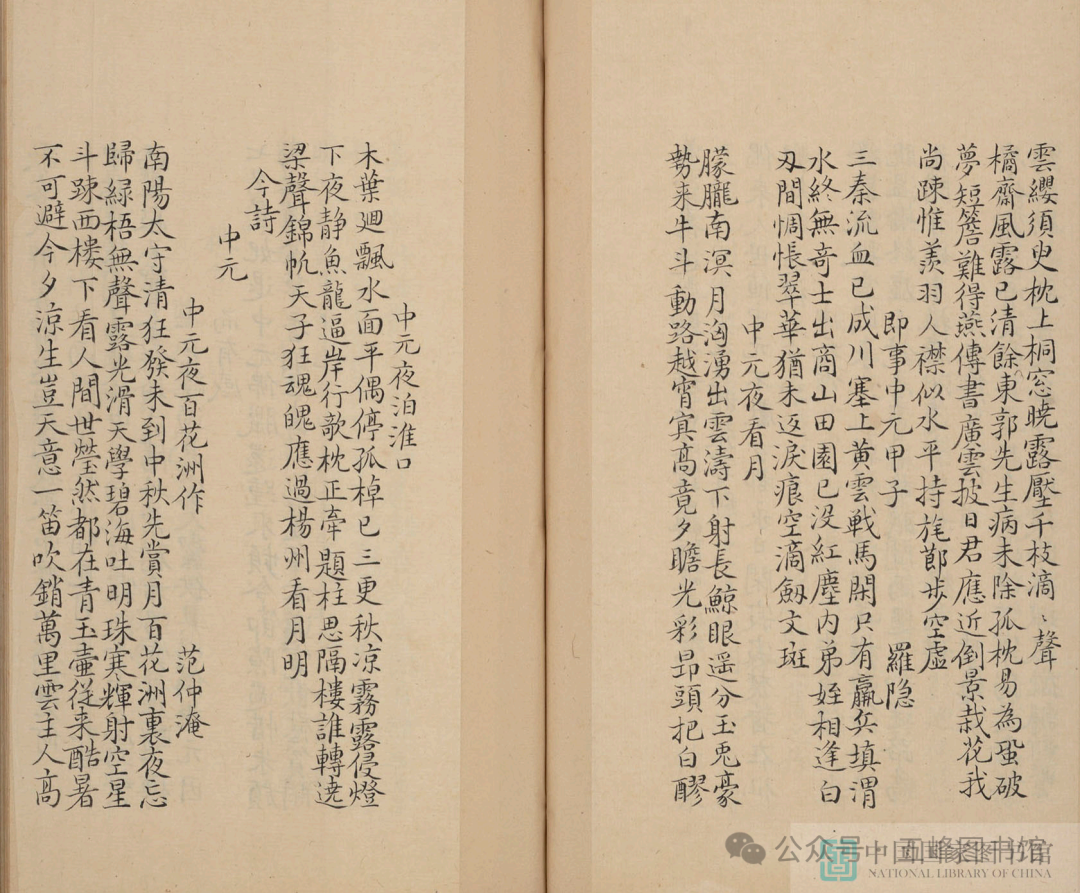 雲纓須臾枕上桐窓曉露壓千枝滴〻聲
橘齋風露已清餘東郭先生病未除孤枕易為蛩破
夢短簷難得燕傳書廣雲披日君應近倒景栽花我
尚踈惟羨羽人襟似水平持旄莭步空虛
即事中元甲子 羅隐
三秦流血已成川塞上黄雲戦馬閑只有羸兵填渭
水終無竒士出商山田園已没紅塵内弟姪相逢白
刄間惆悵翠華猶未返淚痕空滴劔文斑
中元夜看月
朦朧南溟月洶湧出雲濤下射長鯨眼遥分玉兎豪
勢来牛斗動路越霄㝠髙竟夕瞻光彩昻頭把白醪
中元夜泊淮口
木葉廻飄水面平偶停孤棹已三更秋凉霧露侵燈
下夜静魚龍逼岸行歌枕正牽題柱思隔樓誰轉遶
梁聲錦帆天子狂魂魄應過楊州看月明
今詩
中元
中元夜百花洲作 范仲淹
南陽太守清狂發未到中秋先賞月百花洲裏夜忘
歸緑梧無聲露光滑天學碧海吐明珠寒輝射空星
斗踈西楼下看人間世瑩然都在青玉壷従来酷暑
不可避今夕涼生豈天意一笛吹銷萬里雲主人髙
公众号·五峰图书馆
中国国家图书馆
NATIONAL LIBRARY OF CHINA